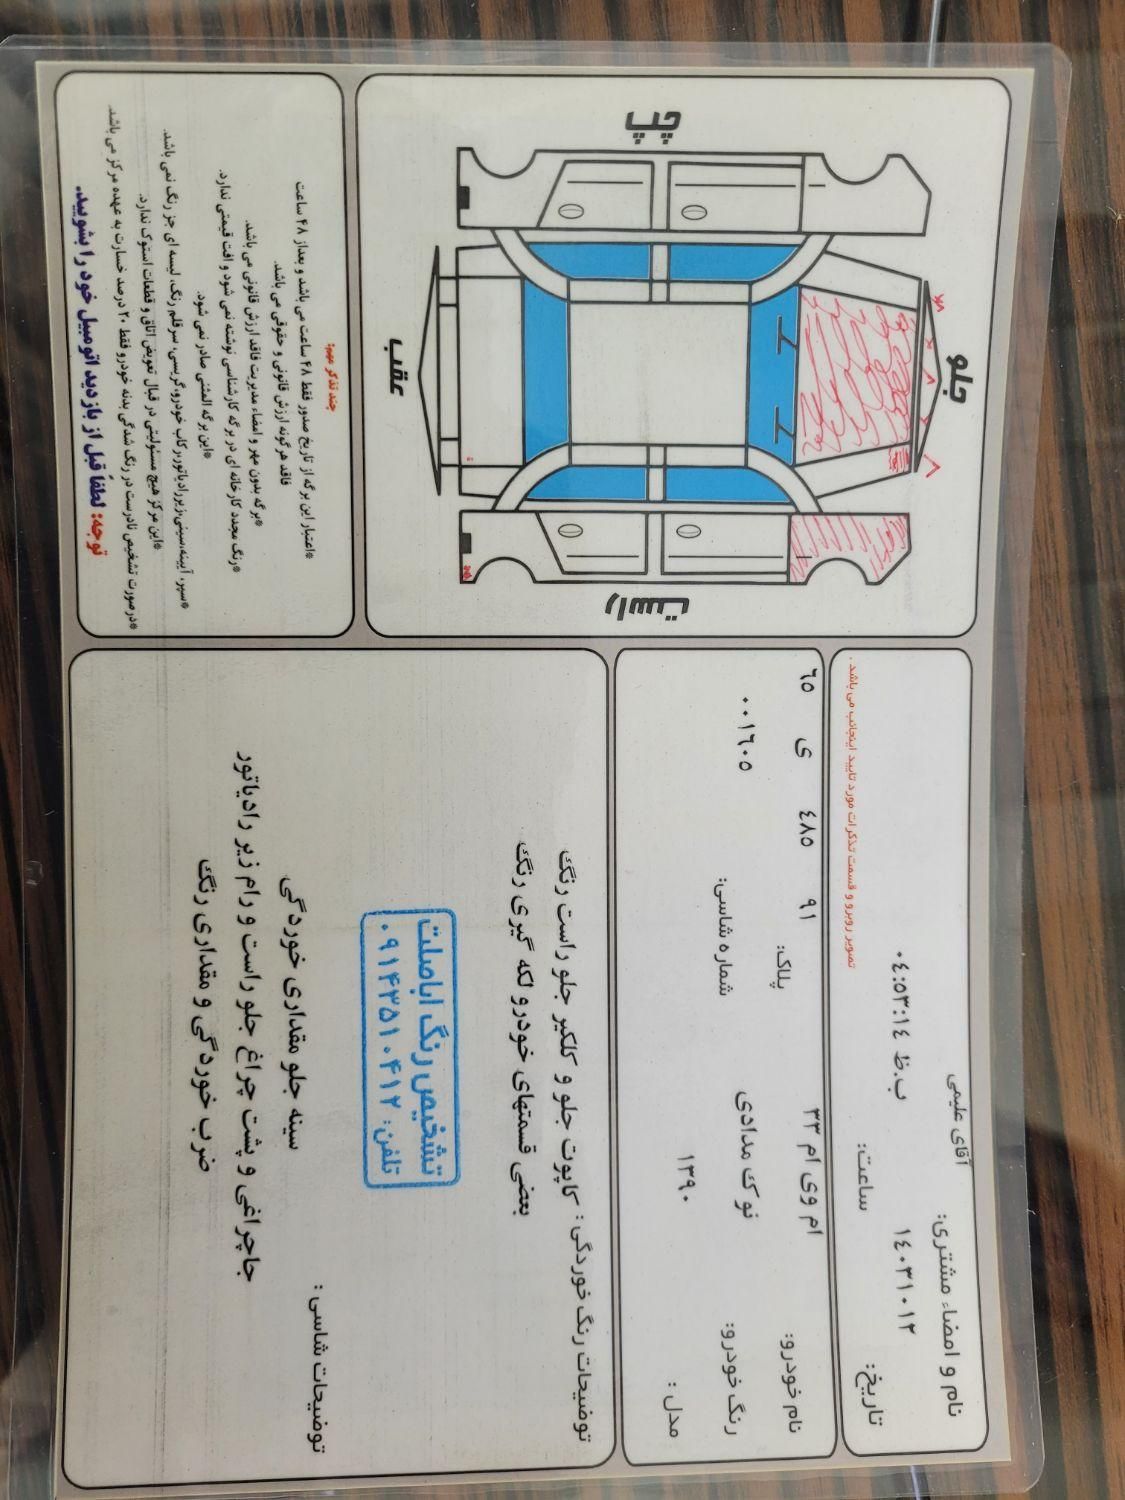 نام و امضاء مشتری: آقای علیمی
تاریخ: ١٤٠٣١٠١٢
ساعت: ٠٤:٥٣:١٤ ب.ظ
تصویر روبرو و قسمت تذکرات مورد تایید اینجانب می باشد.
نام خودرو: ام وی ام ٣٣
پلاک: ٩١ ٤٨٥ ی ٦٥
رنگ خودرو: نوک مدادی
شماره شاسی: ٠٠١٦٠٥
مدل: ١٣٩٠
توضیحات رنگ خوردگی: کاپوت جلو و گلگیر جلو راست رنگ
بعضی قسمتهای خودرو لکه گیری رنگ
تشخیص رنگ اباصلت
تلفن: ۰۹۱۴۳۵۱۰۴۱۲
توضیحات شاسی:
سینه جلو مقداری خوردگی
جاچراغی و پشت چراغ جلو راست و رام زیر رادیاتور
ضرب خوردگی و مقداری رنگ
چپ
جلو
عقب
راست
چند تذکر مهم:
*اعتبار این برگه از تاریخ صدور فقط ۴۸ ساعت می باشد و بعداز ۴۸ ساعت
فاقد هرگونه ارزش قانونی و حقوقی می باشد.
*برگه بدون مهر و امضاء مدیریت فاقد ارزش قانونی می باشد.
*رنگ مجدد کارخانه ای در برگه کارشناسی نوشته نمی شود و افت قیمتی ندارد.
*این برگه المثنی صادر نمی شود.
*سپر، آیینه،سینی،زیررادیاتور،رکاب خودرو،گریسی، سرقلم رنگ، لیسه ای جز رنگ نمی باشد.
*این مرکز هیچ مسئولیتی در قبال تعویض اتاق و قطعات استوک ندارد.
*درصورت تشخیص نادرست در رنگ شدگی بدنه خودرو فقط ۲۰ درصد خسارت به عهده مرکز می باشد.
توجه: لطفاً قبل از بازدید اتومبیل خود را بشویید.